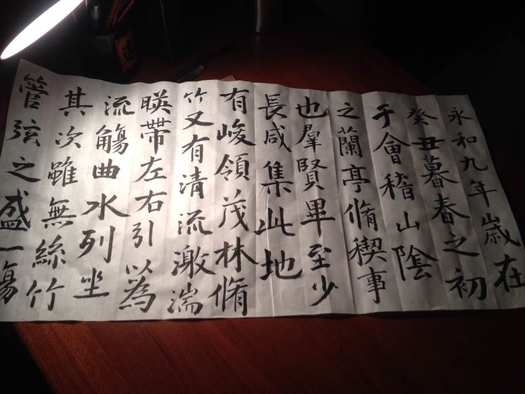 永和九年歲在
癸丑暮春之初
于會稽山陰
之蘭亭脩稧事
也羣賢畢至少
長咸集此地
有峻領茂林脩
竹又有清流激湍
暎帶左右引以為
流觴曲水列坐
其次雖無絲竹
管弦之盛一觴